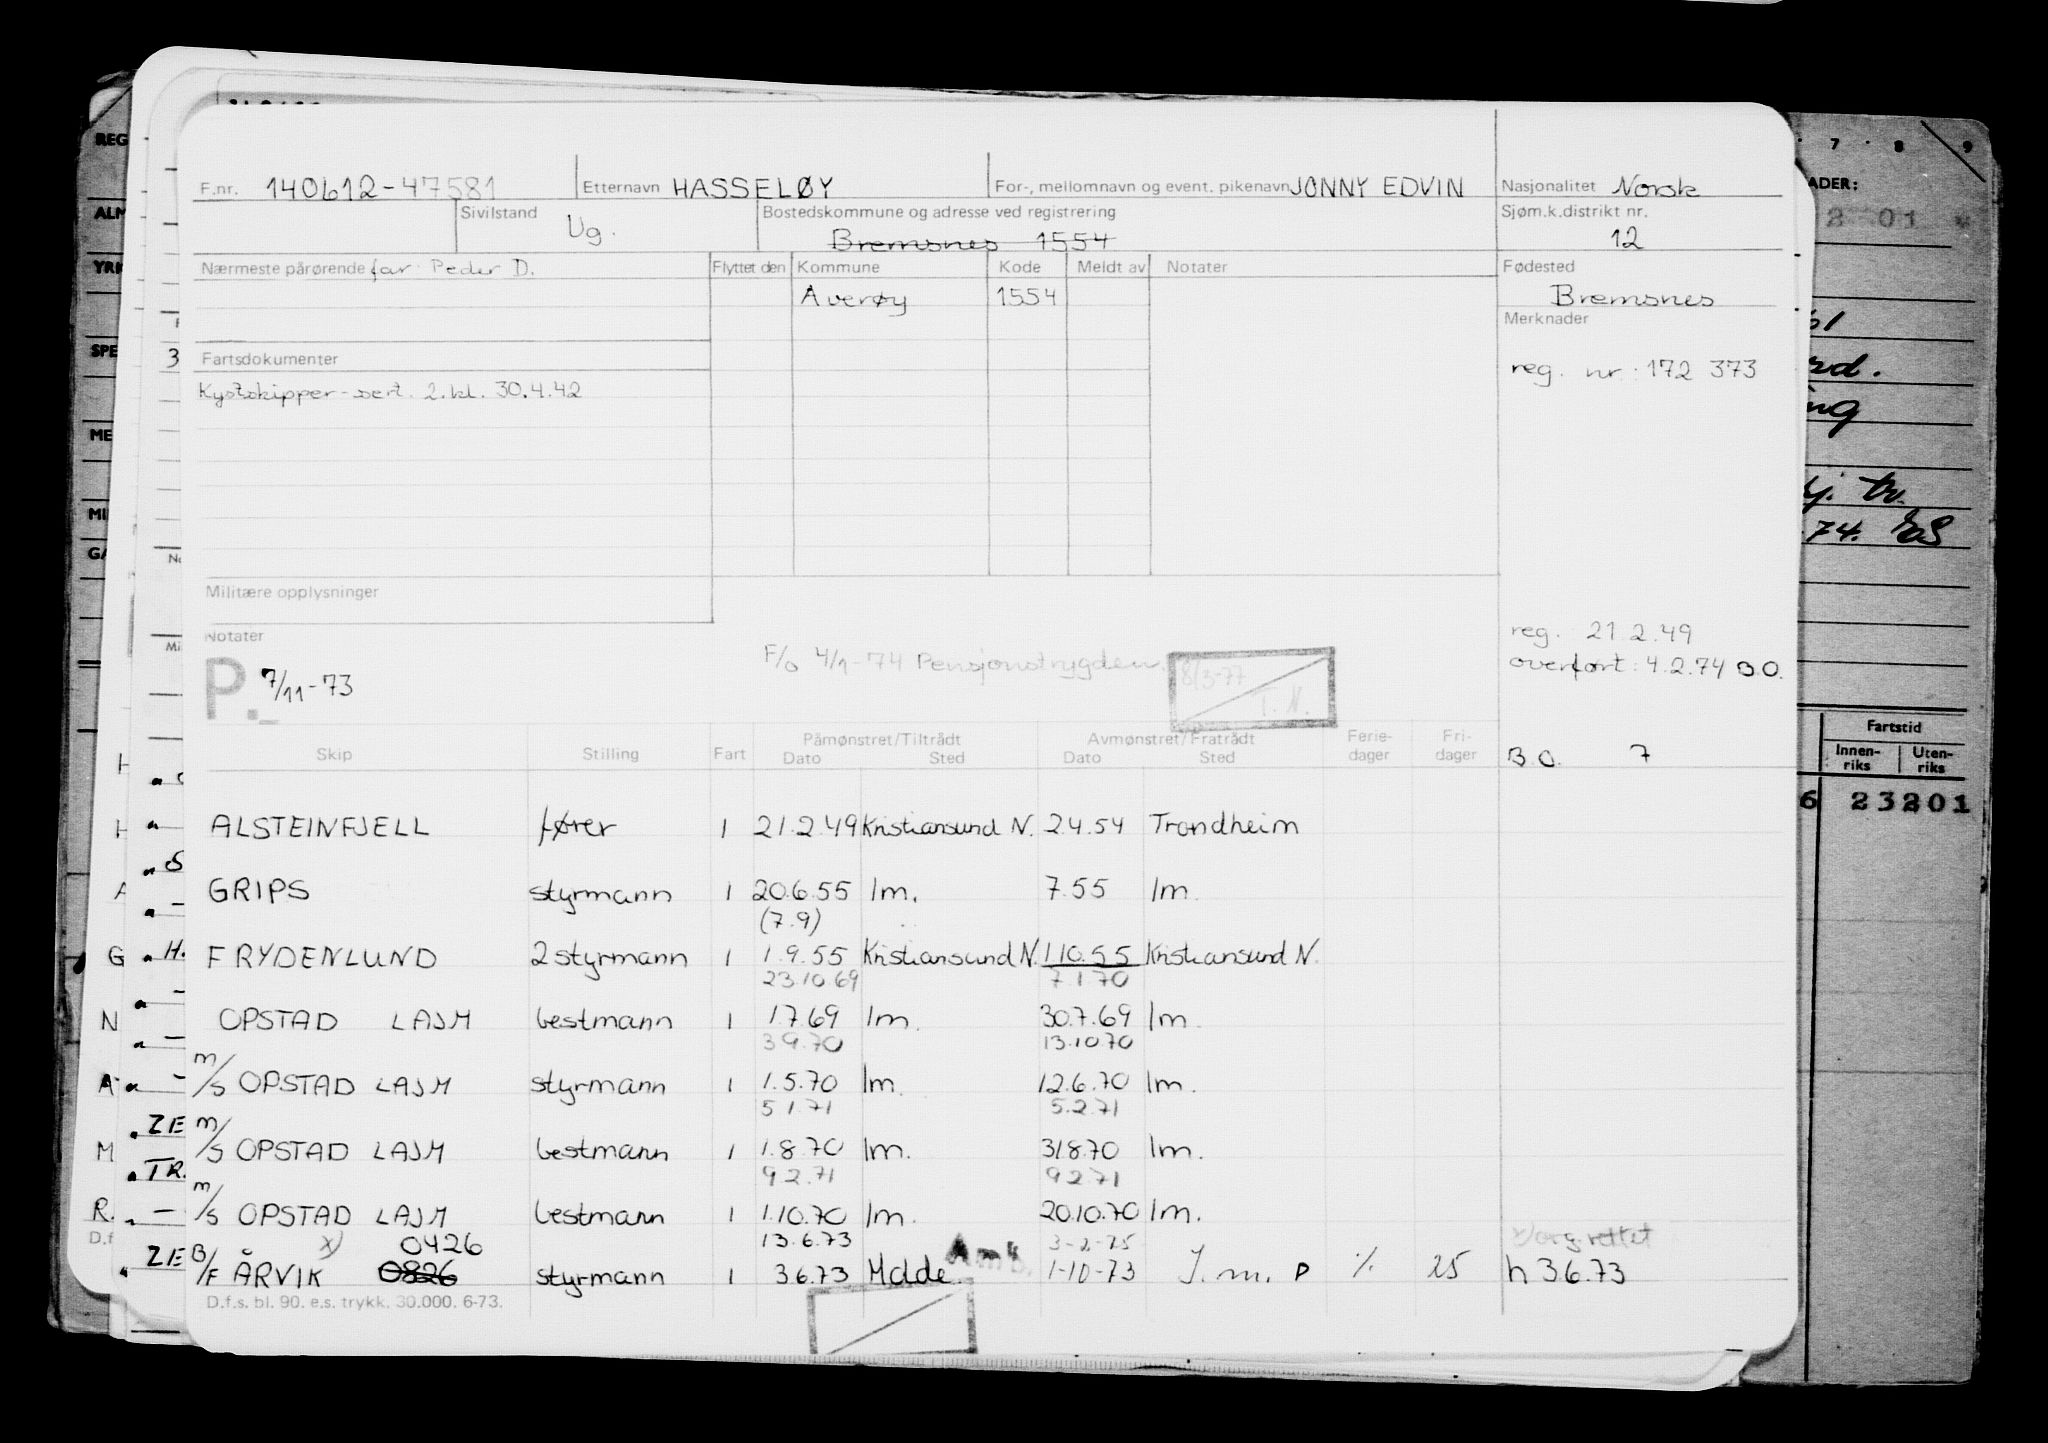 F.nr. 140612-47581 Etternavn HASSELØY For-, mellomnavn og event. pikenavn JONNY EDVIN Nasjonalitet Norsk
Sivilstand Ug. Bostedskommune og adresse ved registrering Bremsnes 1554 Sjøm.k.distrikt nr. 12
Nærmeste pårørende far: Peder D. Flyttet den Kommune Kode Meldt av Notater Fødested
Averøy 1554 Bremsnes
Merknader
Fartsdokumenter reg. nr.: 172 373
Kystskipper-sert. 2.kl. 30.4.42
Militære opplysninger
Notater reg. 21.2.49
F/o 4/1-74 Pensjonstrygden. 8/3-77 T.N. overført: 4.2.74 B.O.
P. 7/11-73
Skip Stilling Fart Påmønstret/Tiltrådt Avmønstret/Fratrådt Ferie- Fri-
Dato Sted Dato Sted dager dager B.O. 7
ALSTEINFJELL fører 1 21.2.49 Kristiansund N. 2.4.54 Trondheim
GRIPS styrmann 1 20.6.55 Im. 7.55 Im.
(7.9)
FRYDENLUND 2 styrmann 1 1.9.55 Kristiansund N. 1.10.55 Kristiansund N.
23.10.69 7.1.70
OPSTAD LAJM bestmann 1 1.7.69 Im. 30.7.69 Im.
3.9.70 13.10.70
m/s OPSTAD LAJM styrmann 1 1.5.70 Im. 12.6.70 Im.
5.1.71 5.2.71
m/s OPSTAD LAJM bestmann 1 1.8.70 Im. 31.8.70 Im.
9.2.71 9.2.71
m/s OPSTAD LAJM bestmann 1 1.10.70 Im. 20.10.70 Im.
x) 0426 13.6.73 3-2-75 x) org. rettet
B/F ÅRVIK 0826 styrmann 1 3.6.73 Molde 1-10-73 J.m. P % 25 h 3.6.73
D.f.s. bl. 90. e.s. trykk. 30.000. 6-73.
7 8 9
ADER:
2 01
61
74.
Fartstid
Innen-riks Uten-riks
6 23201
REG
ALM
YRK
SPE
ME
MI
GA